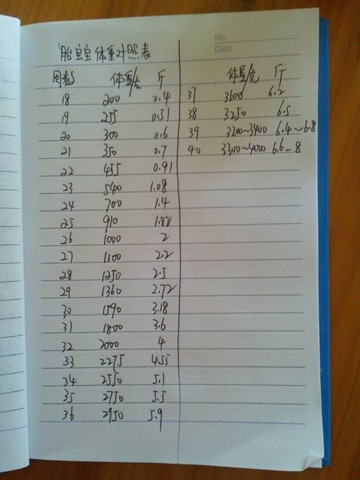 No.
Date
胎宝宝体重对照表
周数 体重/克 斤
18 200 0.4
19 255 0.51
20 300 0.6
21 350 0.7
22 455 0.91
23 540 1.08
24 700 1.4
25 910 1.82
26 1000 2
27 1100 2.2
28 1250 2.5
29 1360 2.72
30 1590 3.18
31 1800 3.6
32 2000 4
33 2275 4.55
34 2550 5.1
35 2750 5.5
36 2950 5.9
体重/克 斤
37 3100 6.2
38 3250 6.5
39 3200~3400 6.4~6.8
40 3300~4000 6.6~8